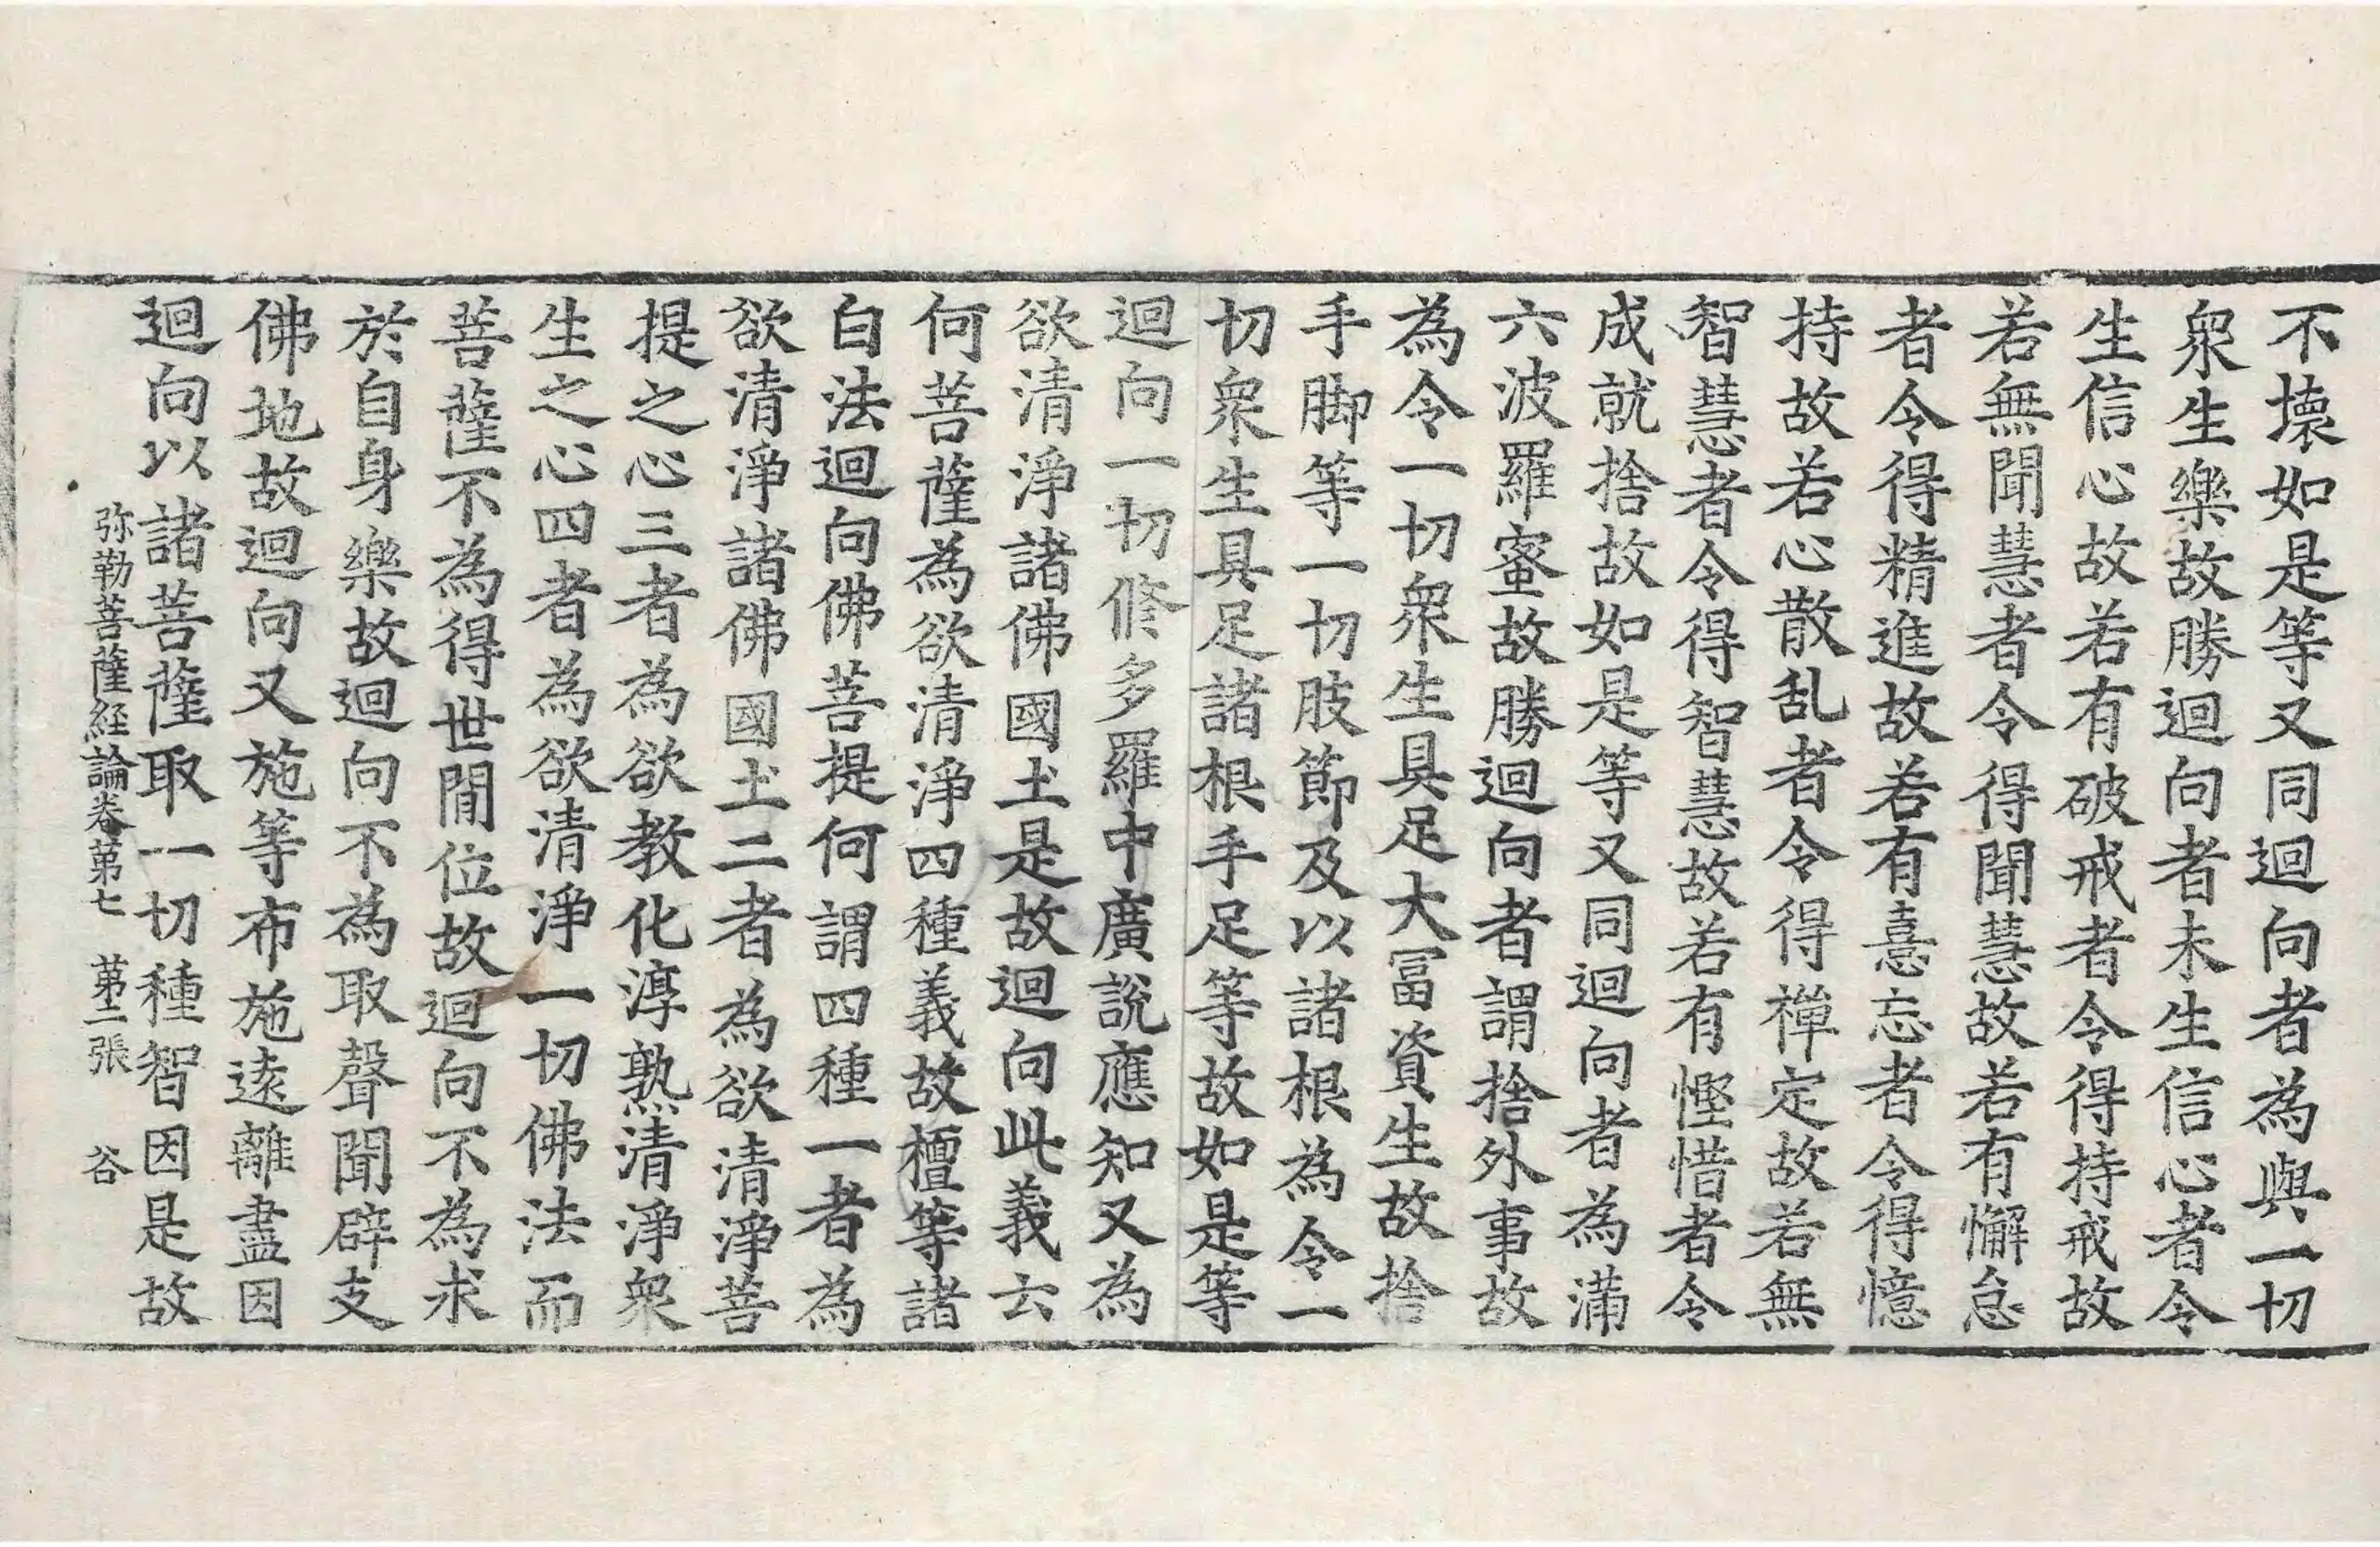 不壞如是等又同迴向者為與一切
衆生樂故勝迴向者未生信心者令
生信心故若有破戒者令得持戒故
若無聞慧者令得聞慧故若有懈怠
者令得精進故若有憙忘者令得憶
持故若心散乱者令得禪定故若無
智慧者令得智慧故若有慳惜者令
成就捨故如是等又同迴向者為滿
六波羅蜜故勝迴向者謂捨外事故
為令一切衆生具足大冨資生故捨
手脚等一切肢節及以諸根為令一
切衆生具足諸根手足等故如是等
迴向一切修多羅中廣說應知又為
欲清淨諸佛國土是故迴向此義云
何菩薩為欲清淨四種義故檀等諸
白法迴向佛菩提何謂四種一者為
欲清淨諸佛國土二者為欲清淨菩
提之心三者為欲教化淳熟清淨衆
生之心四者為欲清淨一切佛法而
菩薩不為得世間位故迴向不為求
於自身樂故迴向不為取聲聞辟支
佛地故迴向又施等布施遠離盡因
迴向以諸菩薩取一切種智因是故
弥勒菩薩経論卷第七 第二張 谷